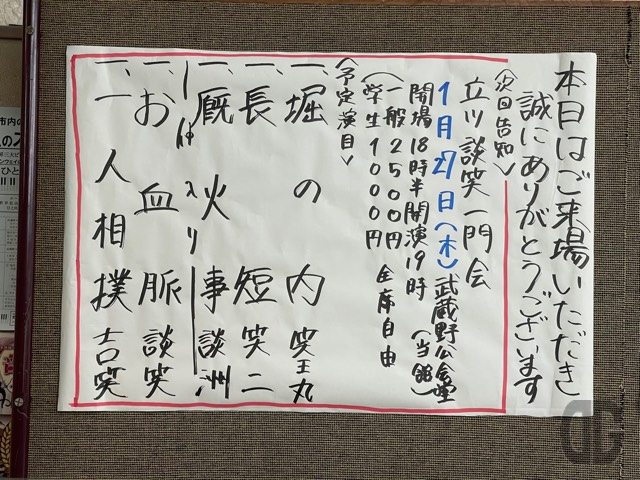 本日はご来場いただき
誠にありがとうございます
〈次回告知〉
立川談笑一門会
1月27日(木)武蔵野公会堂
(当館)
開場18時半開演19時
(一般2500円
学生1000円)全席自由
〈予定演目〉
一、堀の内 笑王丸
一、長短 笑二
一、厩火事 談洲
―仲入り―
一、お血脈 談笑
一、一人相撲 吉笑
市内の
DG